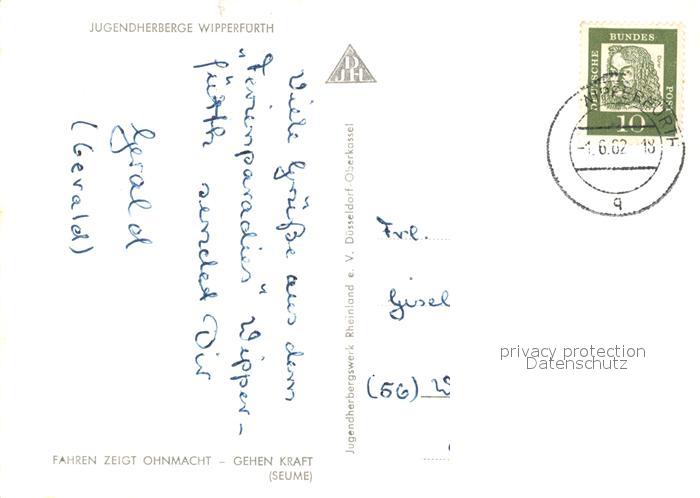 JUGENDHERBERGE WIPPERFÜRTH
Viele Grüße aus dem
„Ferienparadies“ Wipper-
fürth sendet Dir
Gerald
(Gerald)
FAHREN ZEIGT OHNMACHT – GEHEN KRAFT
(SEUME)
DJH
Jugendherbergswerk Rheinland e. V. Düsseldorf-Oberkassel
DEUTSCHE BUNDES POST
Dürer
10
WIPPERFÜRTH
-1.6.62-18
q
Frl.
Gisel
(56) W
privacy protection
Datenschutz